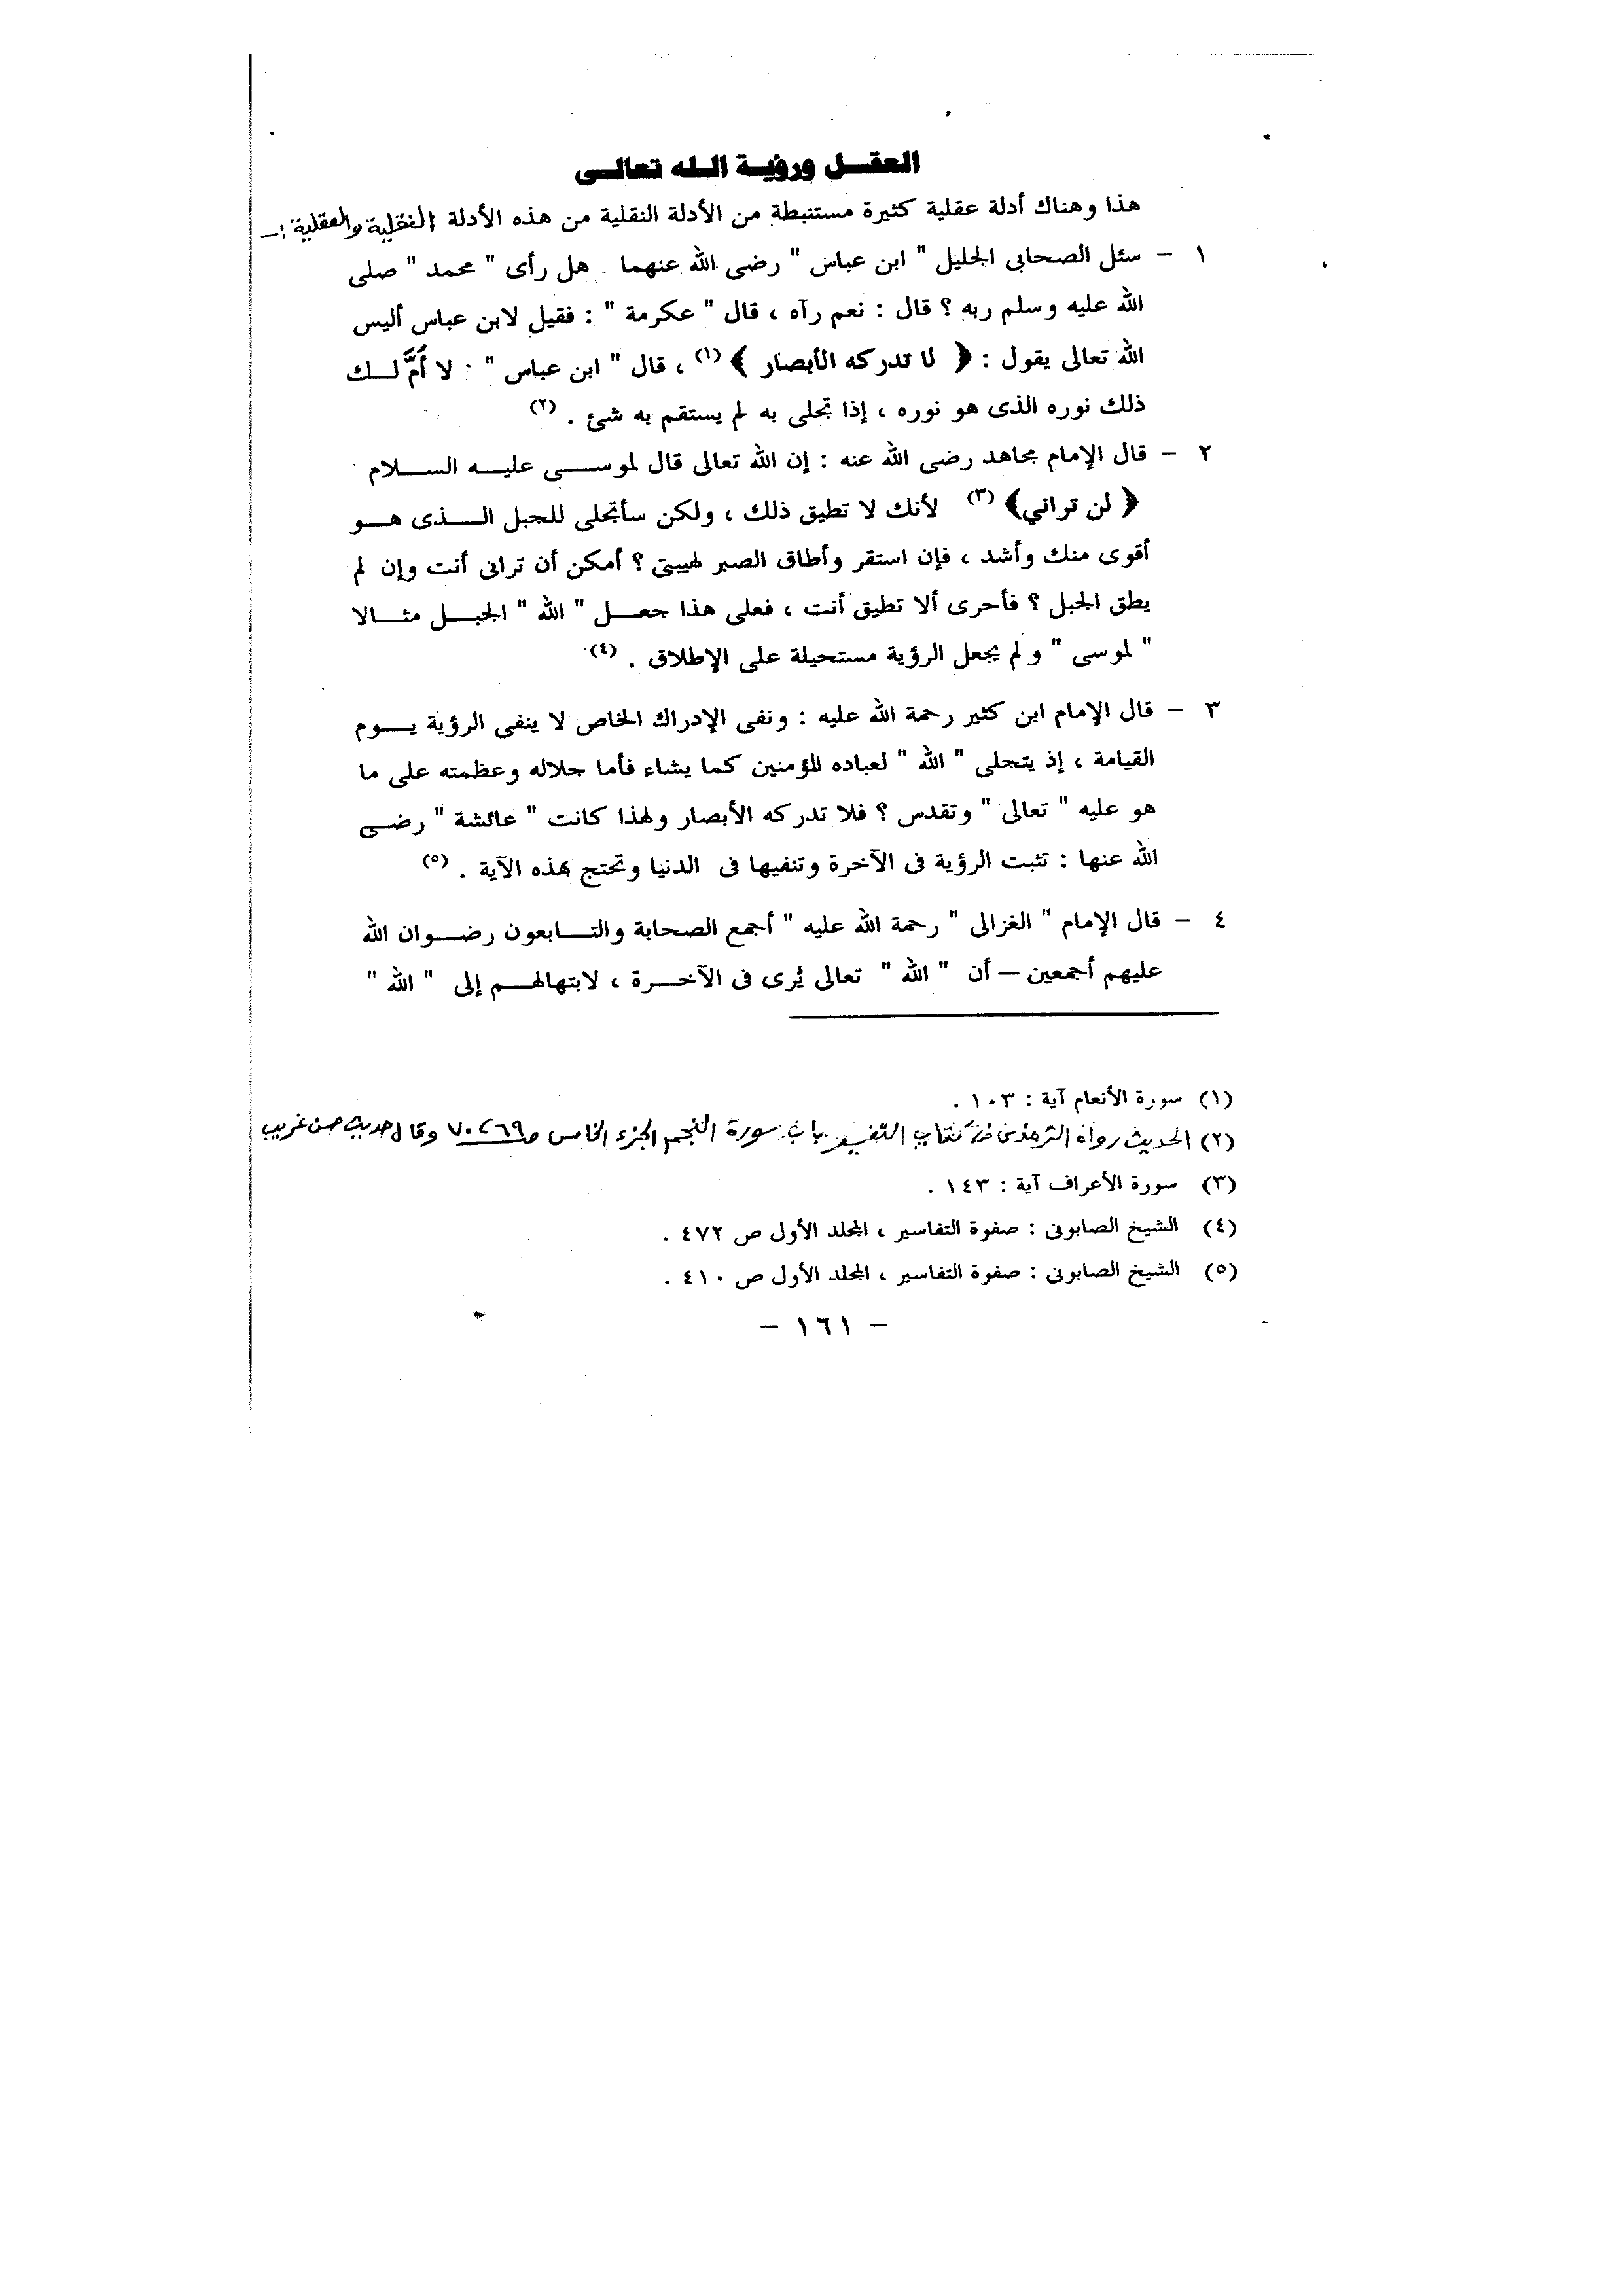 العقل ورؤية الله تعالى
هذا وهناك أدلة عقلية كثيرة مستنبطة من الأدلة النقلية من هذه الأدلة النقلية والعقلية :–
١ – سئل الصحابى الجليل " ابن عباس " رضى الله عنهما . هل رأى " محمد " صلى
الله عليه وسلم ربه ؟ قال : نعم رآه ، قال " عكرمة " : فقيل لابن عباس أليس
الله تعالى يقول : ﴿ لا تدركه الأبصار ﴾ (١) ، قال " ابن عباس " : لا أُمَّ لك
ذلك نوره الذى هو نوره ، إذا تجلى به لم يستقم به شئ . (٢)
٢ – قال الإمام مجاهد رضى الله عنه : إن الله تعالى قال لموسى عليه السلام
﴿ لن تراني﴾ (٣) لأنك لا تطيق ذلك ، ولكن سأتجلى للجبل الذى هو
أقوى منك وأشد ، فإن استقر وأطاق الصبر لهيبتى ؟ أمكن أن ترانى أنت وإن لم
يطق الجبل ؟ فأحرى ألا تطيق أنت ، فعلى هذا جعل " الله " الجبل مثالا
" لموسى " ولم يجعل الرؤية مستحيلة على الإطلاق . (٤)
٣ – قال الإمام ابن كثير رحمة الله عليه : ونفى الإدراك الخاص لا ينفى الرؤية يوم
القيامة ، إذ يتجلى " الله " لعباده المؤمنين كما يشاء فأما جلاله وعظمته على ما
هو عليه " تعالى " وتقدس ؟ فلا تدركه الأبصار ولهذا كانت " عائشة " رضى
الله عنها : تثبت الرؤية فى الآخرة وتنفيها فى الدنيا وتحتج بهذه الآية . (٥)
٤ – قال الإمام " الغزالى " رحمة الله عليه " أجمع الصحابة والتابعون رضوان الله
عليهم أجمعين – أن " الله " تعالى يُرى فى الآخرة ، لابتهالهم إلى " الله "
(١) سورة الأنعام آية : ١٠٣ .
(٢) الحديث رواه الترمذى فى كتاب التفسير باب سورة النجم الجزء الخامس ص ٦٩، ٧٠ وقال حديث حسن غريب
(٣) سورة الأعراف آية : ١٤٣ .
(٤) الشيخ الصابونى : صفوة التفاسير ، المجلد الأول ص ٤٧٢ .
(٥) الشيخ الصابونى : صفوة التفاسير ، المجلد الأول ص ٤١٠ .
– ١٦١ –